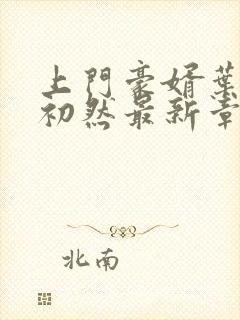 上門豪婿葉
初然最新章
北南